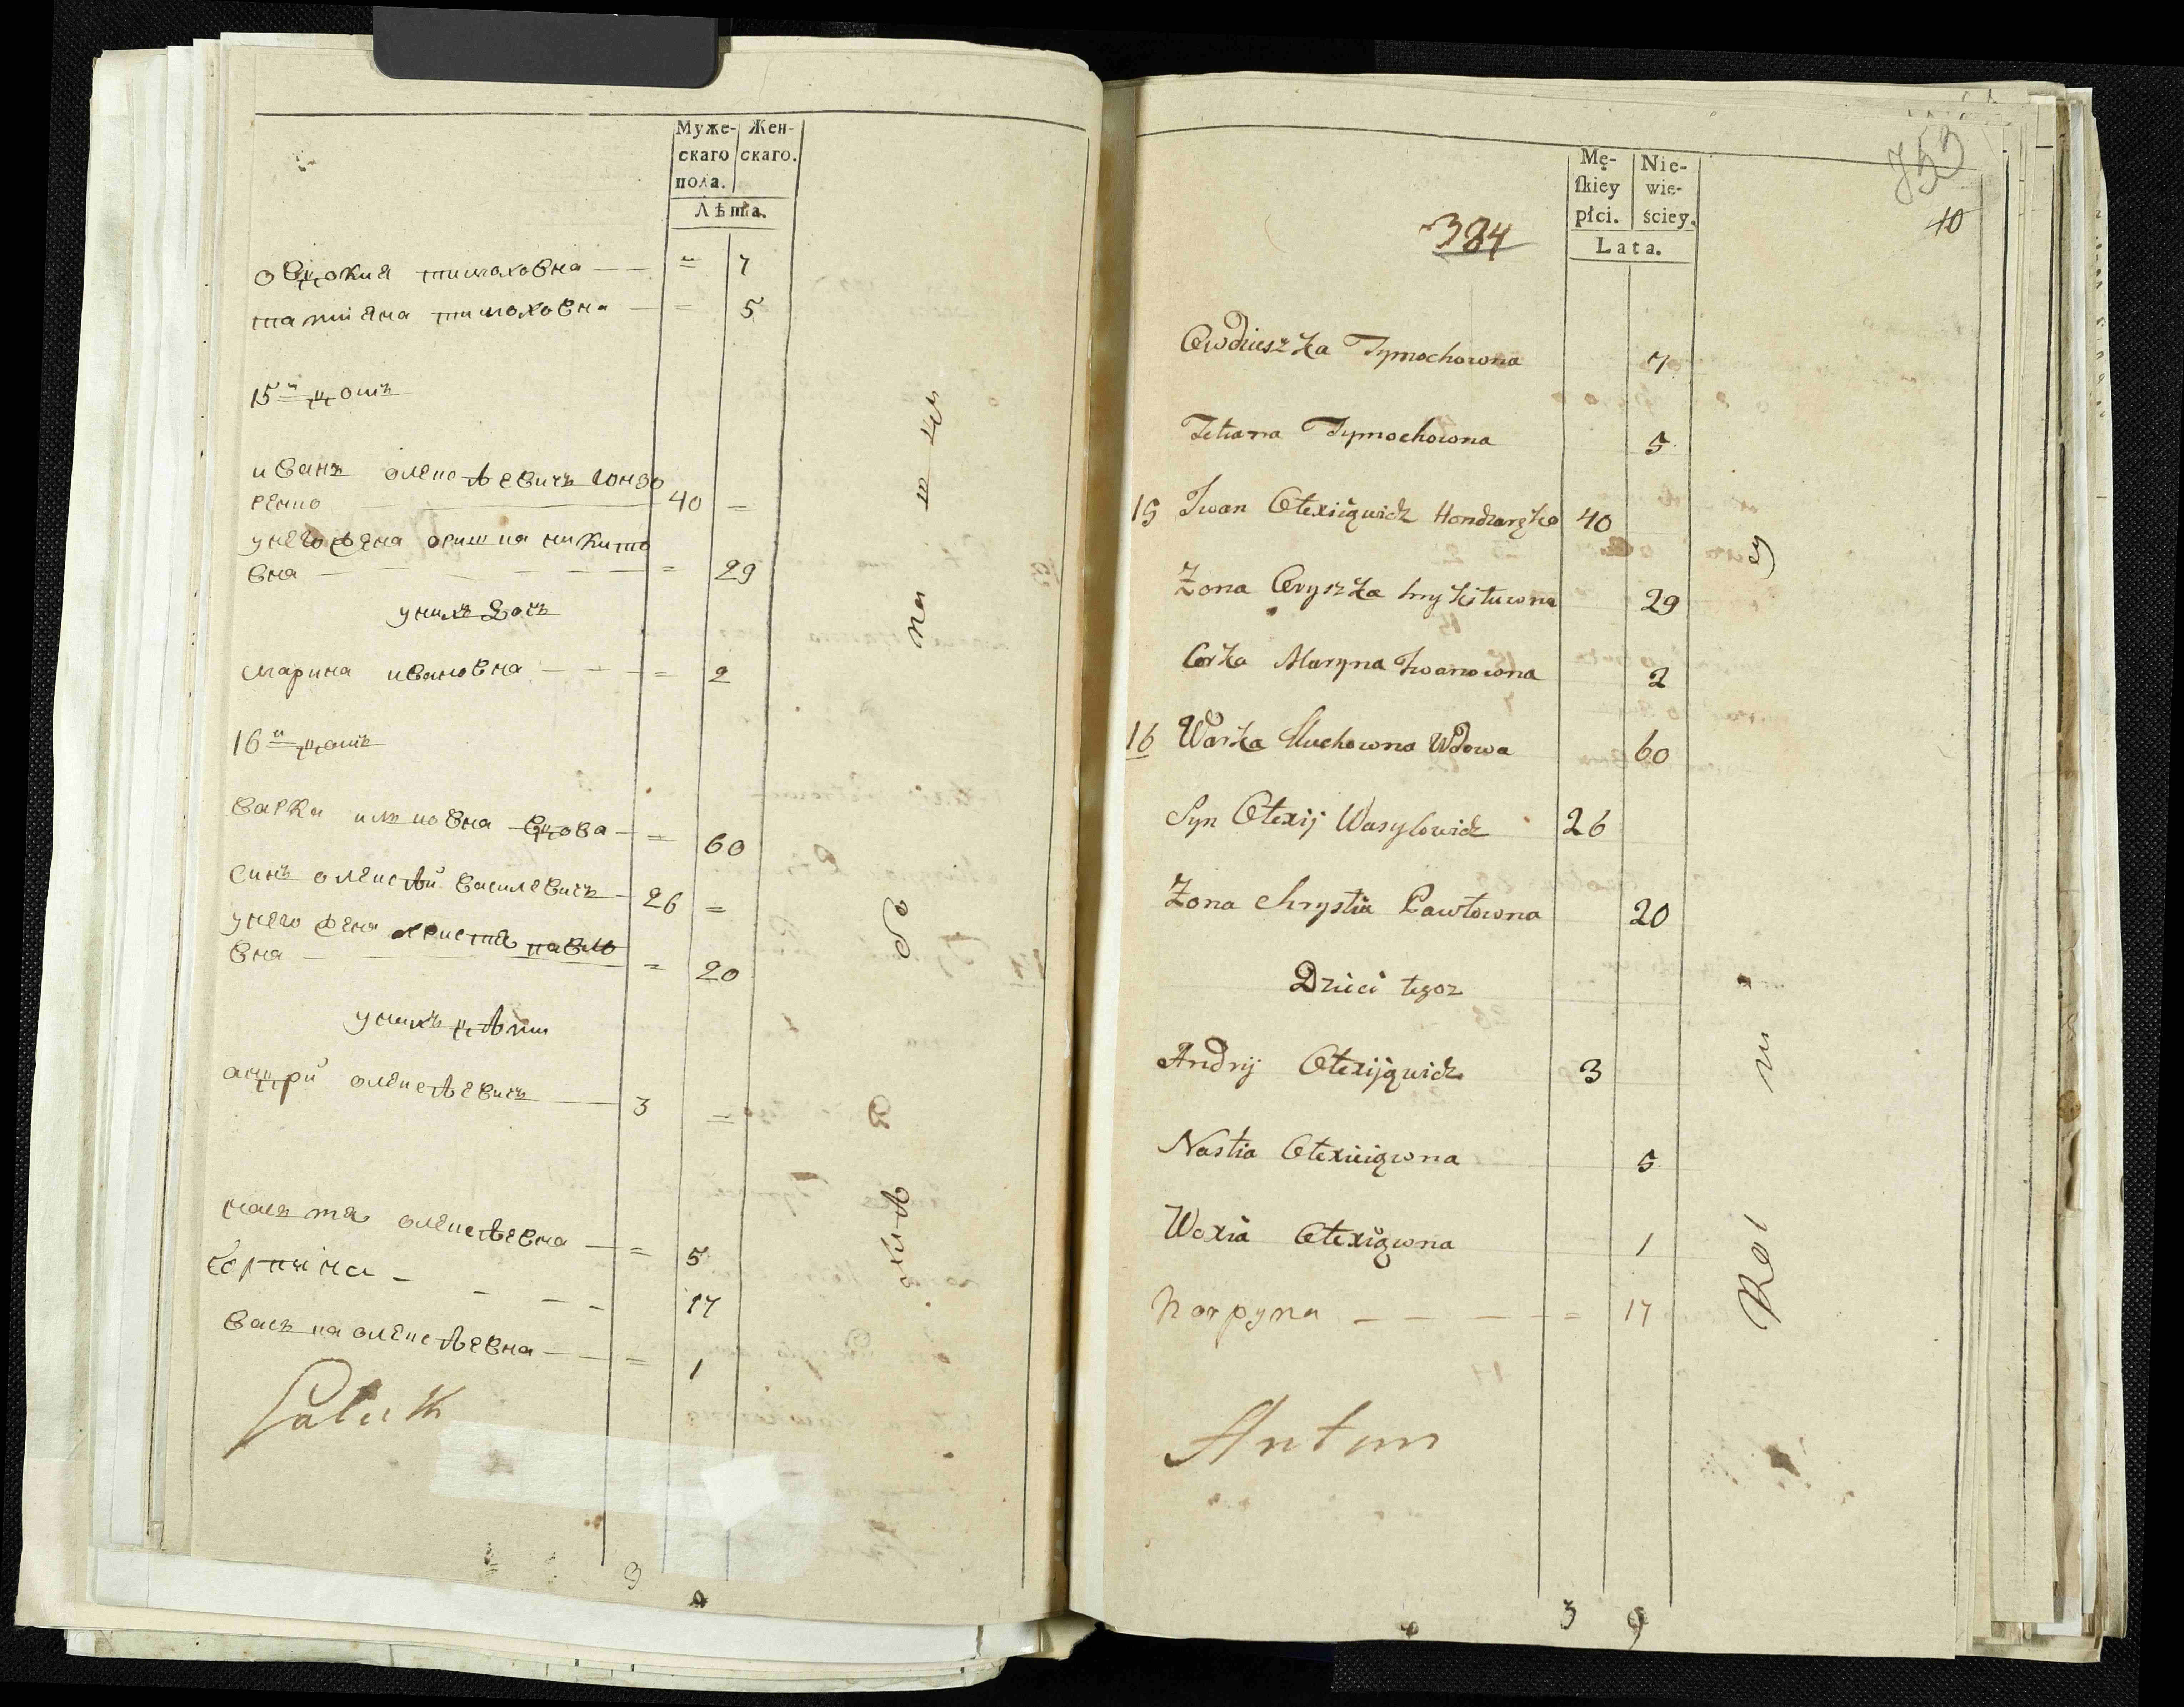 Муже- Жен-
скаго скаго.
пола.
Лѣта.
овдокия тимоховна — — = 7
татияна тимоховна — = 5
15й домъ
иванъ олексѣевичъ гонча
ренко 40 =
унего жена оришка микито
вна = 29
унихъ дочъ
марина ивановна — — = 2
16й домъ
варка илковна вдова — = 60
синъ олексѣй василевичъ 26 =
унего жена христя павло
вна — = 20
унихъ дѣти
андрй олексѣевичъ — 3 =
настя олексѣевна — = 5
— — — 17
васка олексѣевна — — = 1
3
353
10
384
Mę- Nie-
skiey wie-
płci. ściey.
Lata.
Owdieszka Tymochowna 7
Tetiana Tymochowna 5
15 Iwan Olexiiowicz 40
Zona Oryszka Mykitowna 29
Corka Maryna Iwanowna 2
16 Warka Iluchowna Wdowa 60
Syn Olexij Wasylowicz 26
Zona Chrystia Pawlowna 20
Dzieci tegoz
Andrij Olexijowicz 3
Nastia Olexiiowna 5
Woxia Olexiiowna 1
horpyna — — — = 17
Anton
3 9